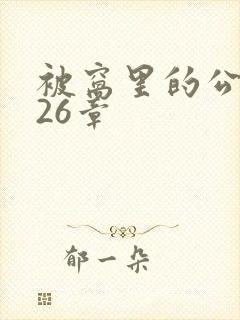 被窝里的公
26章
郁一朵